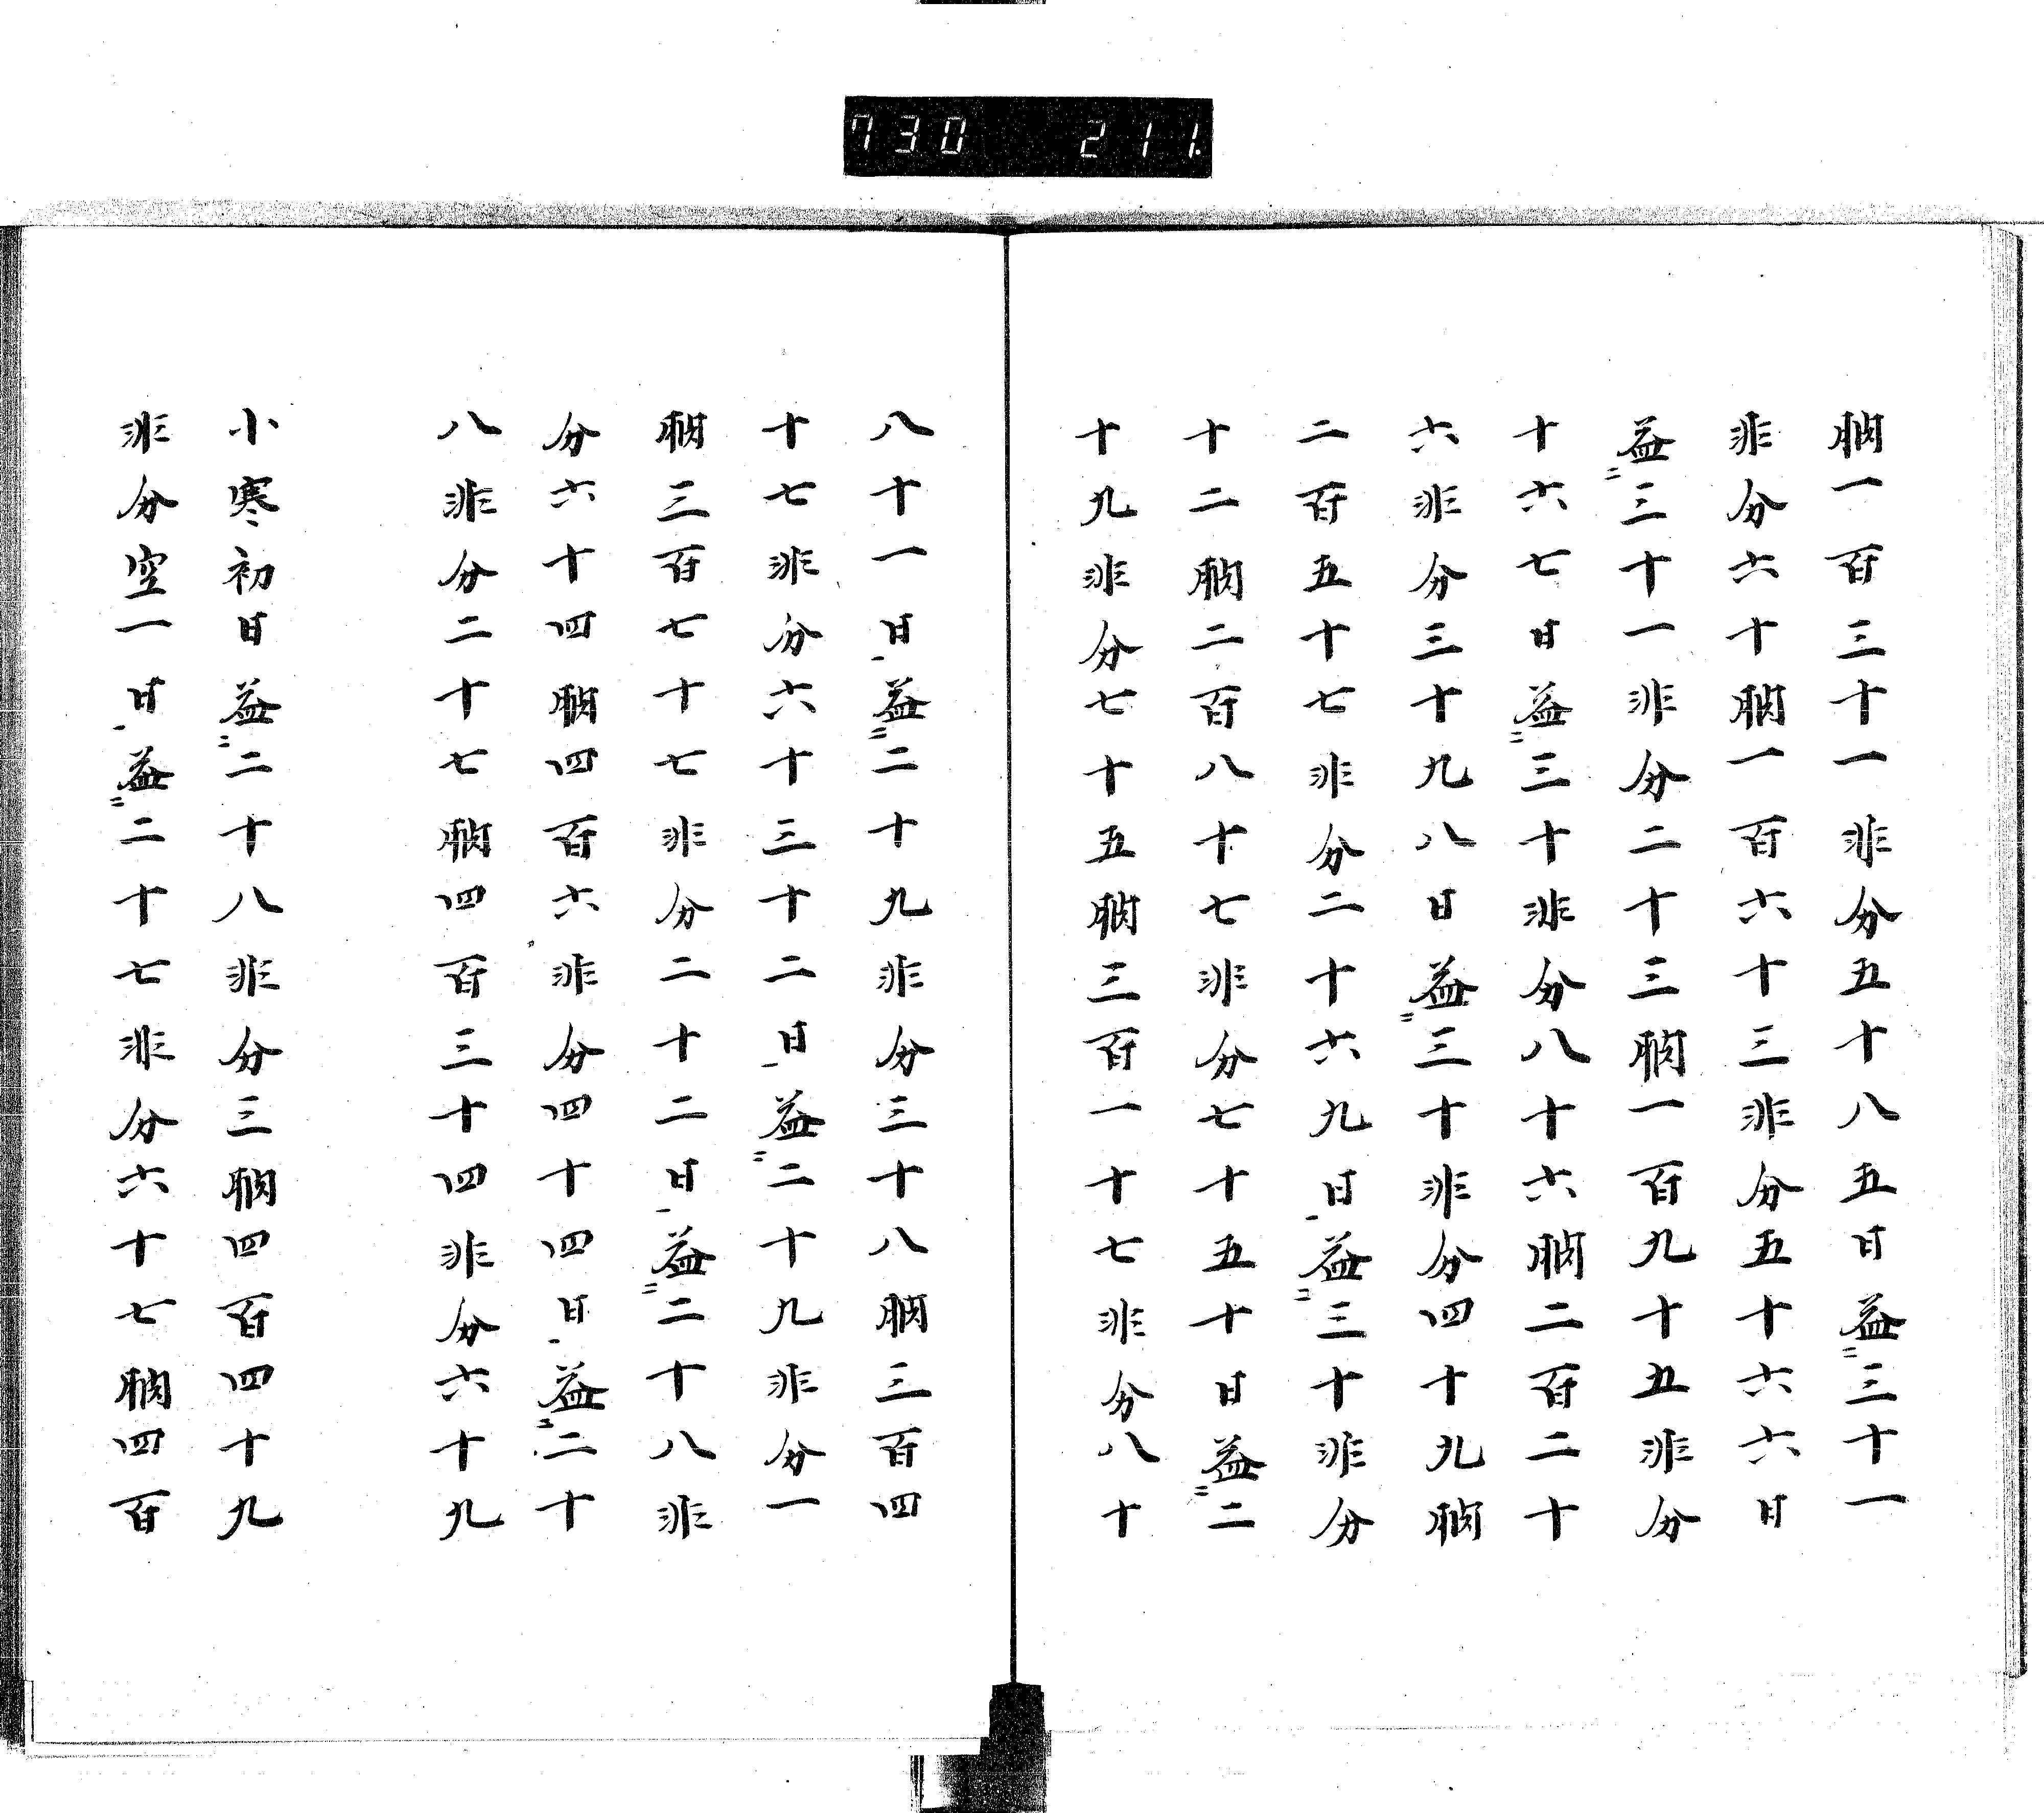 730 211
朒一百三十一非分五十八五日益三十一
非分六十朒一百六十三非分五十六六日
益三十一非分二十三朒一百九十五非分
十六七日益三十非分八十六朒二百二十
六非分三十九八日益三十非分四十九朒
二百五十七非分二十六九日益三十非分
十二朒二百八十七非分七十五十日益二
十九非分七十五朒三百一十七非分八十
八十一日益二十九非分三十八朒三百四
十七非分六十三十二日益二十九非分一
朒三百七十七非分二十二日益二十八非
分六十四朒四百六非分四十四日益二十
八非分二十七朒四百三十四非分六十九
小寒初日益二十八非分三朒四百四十九
非分空一日益二十七非分六十七朒四百